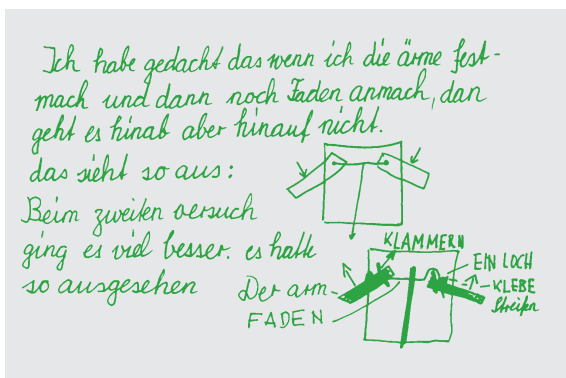 Ich habe gedacht das wenn ich die ärme fest-
mach und dann noch Faden anmach, dan
geht es hinab aber hinauf nicht.
das sieht so aus:
Beim zweiten versuch
ging es viel besser. es hatte
so ausgesehen
KLAMMERN
EIN LOCH
KLEBE
Streifen
Der arm
FADEN